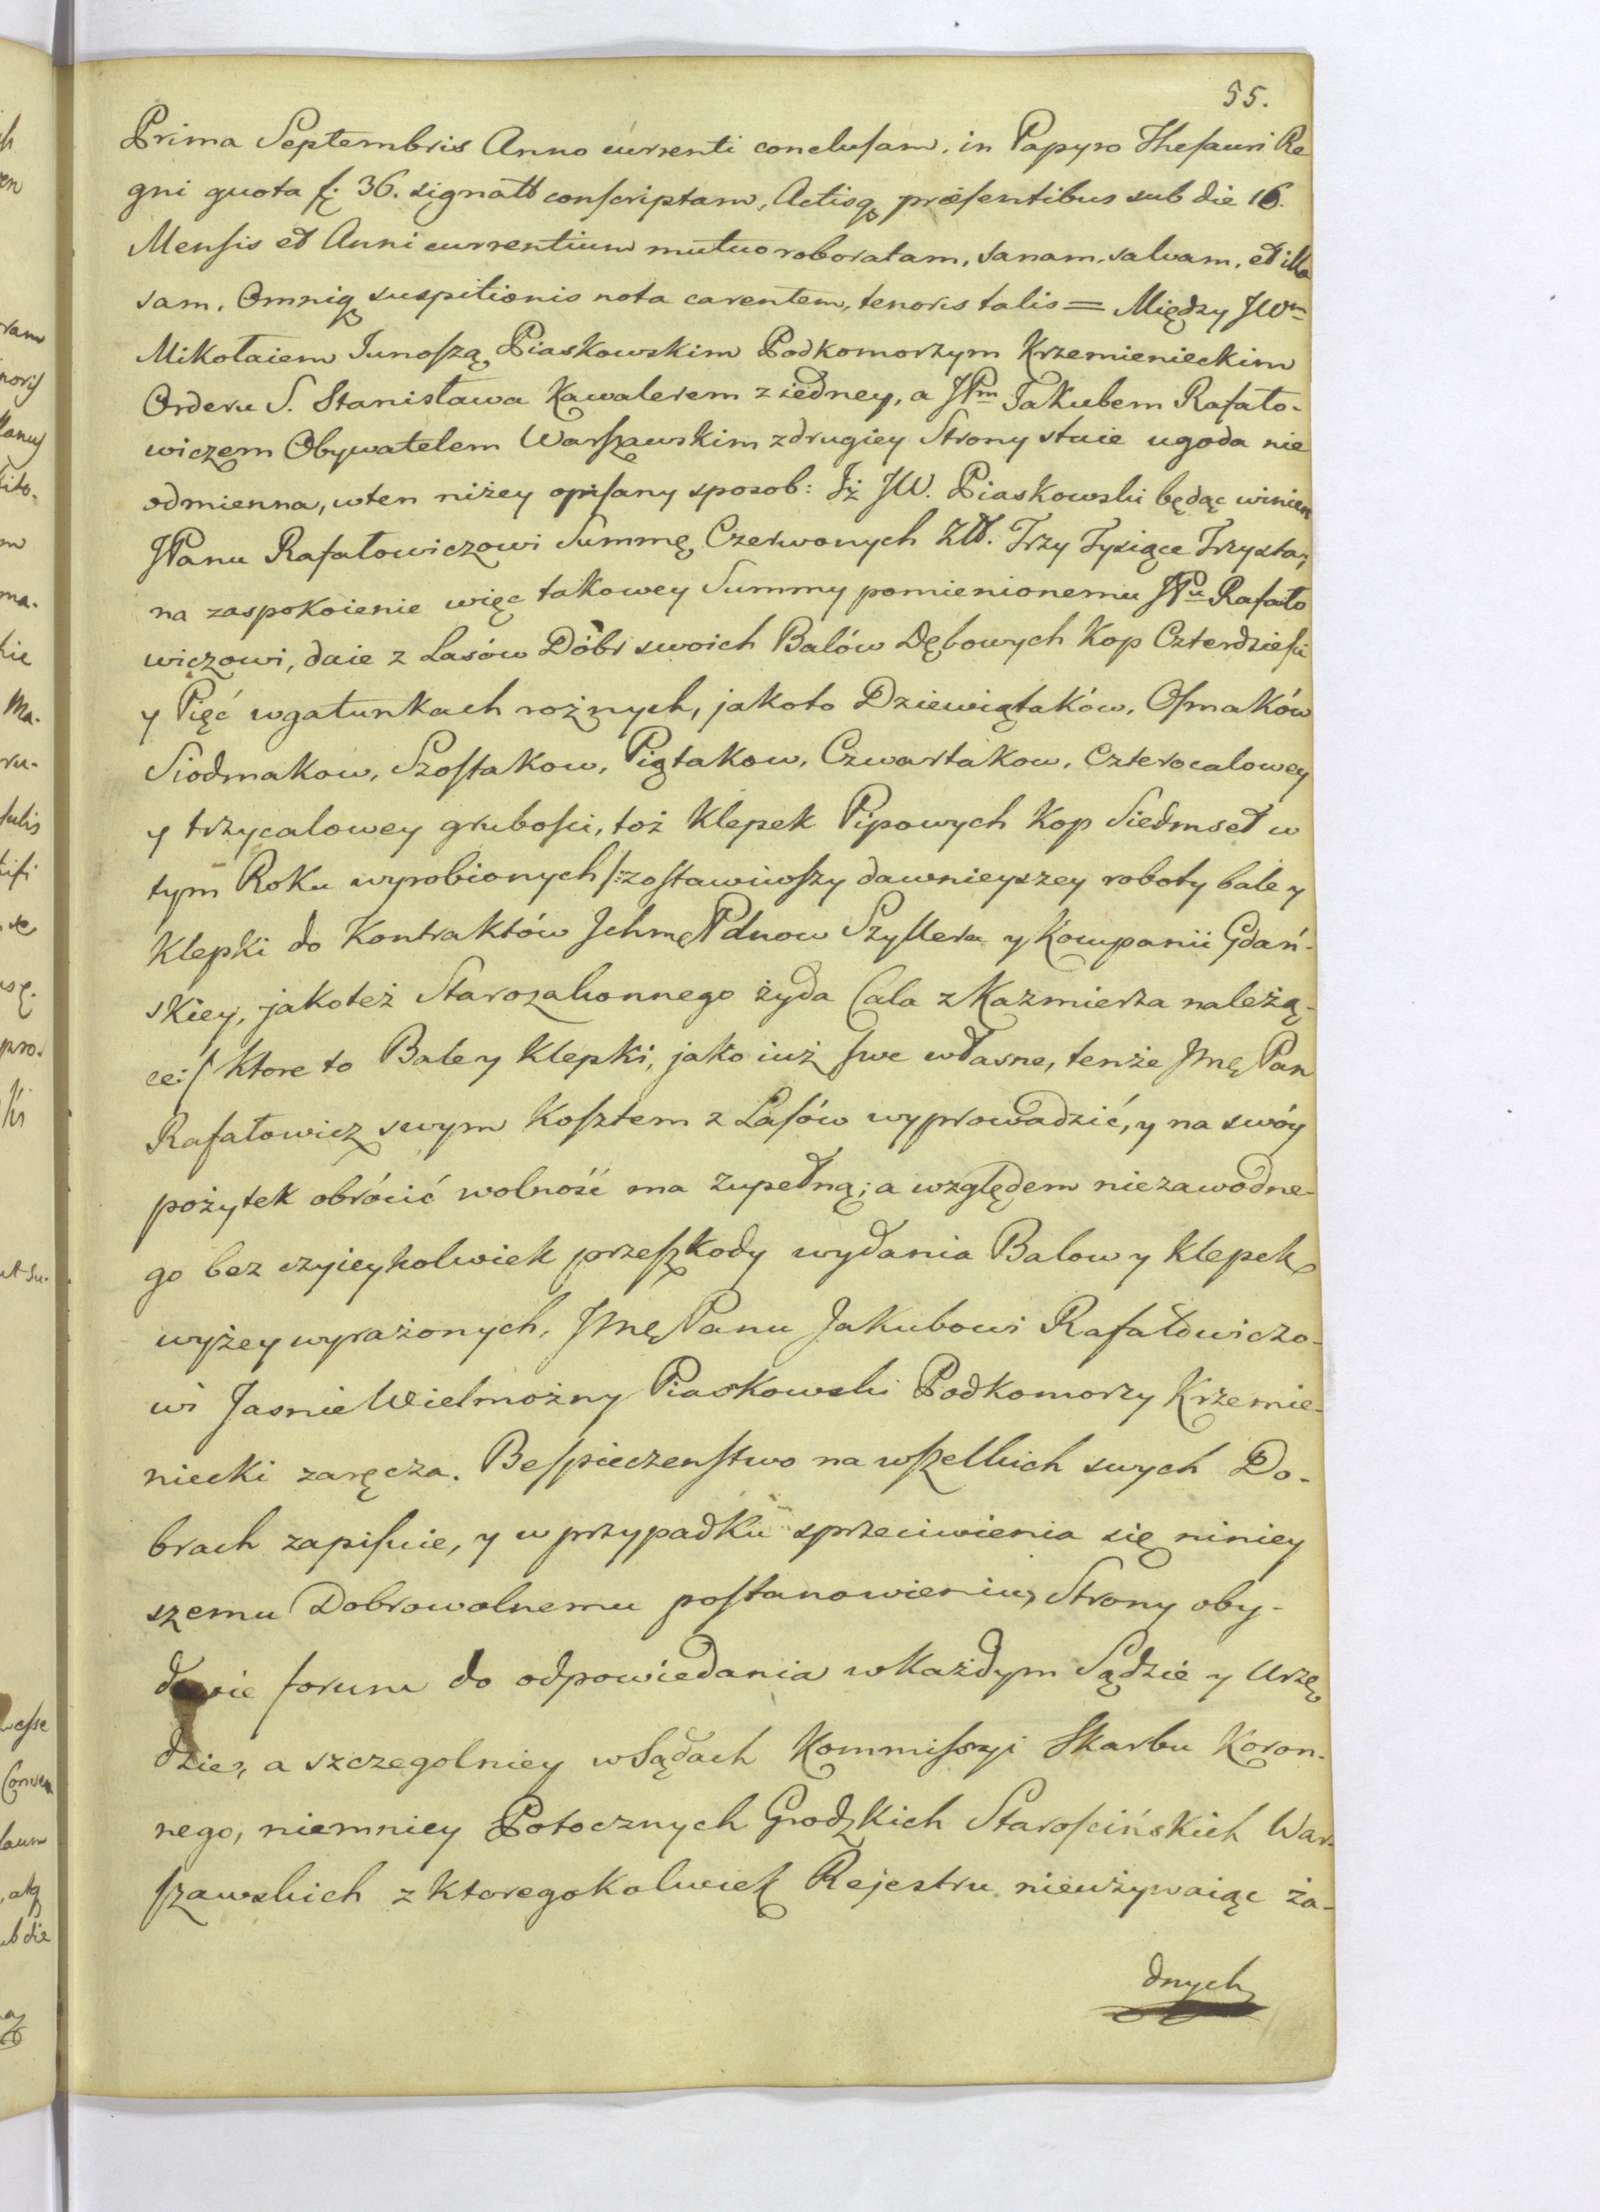 55.
Prima Septembris Anno currenti conclusam, in Papyro Thesauri Re
gni quota fl: 36. signato conscriptam, Actisq; præsentibus sub die 16.
Mensis et Anni currentium mutuo roboratam, sanam, salvam, et illæ
sam, Omniq; suspitionis nota carentem, tenoris talis = Między JWm
Mikołaiem Junoszą Piaskowskim Podkomorzym Krzemienieckim
Orderu S. Stanisława Kawalerem z iedney, a JPm Jakubem Rafało-
wiczem Obywatelem Warszawskim z drugiey Strony staie ugoda nie
odmienna, w ten niżey opisany sposob: Iż JW. Piaskowski będąc winien
JPanu Rafałowiczowi Summę Czerwonych Złł. Trzy Tysiące Trzysta,
na zaspokoienie więc takowey Summy pomienionemu JPu Rafało
wiczowi, daie z Lasów Dóbr swoich Balów Dębowych Kop Czterdzieści
y Pięć w gatunkach rożnych, jakoto Dziewiątaków, Osmaków
Siodmakow, Szostakow, Piątakow, Czwartakow, Czterocalowey
y trzycalowey grubości, toż Klepek Pipowych Kop Siedmset w
tym Roku wyrobionych /: zostawiwszy dawnieyszey roboty bale y
Klepki do Kontraktów Jchmę Pdnow Szyllera y Kompanii Gdań-
skiey, jakoteż Starozakonnego żyda Cala z Kazmierza należą-
ce :/ ktore to Bale y Klepki, jako iuż swe własne, tenże Jmę Pan
Rafałowicz swym Kosztem z Lasów wyprowadzić, y na swóy
pożytek obrócić wolność ma zupełną; a względem niezawodne-
go bez czyieykolwiek przeszkody wydania Balow y Klepek
wyżey wyrażonych, Jmę Panu Jakubowi Rafałowiczo-
wi Jasnie Wielmożny Piaskowski Podkomorzy Krzemie-
niecki zaręcza. Bespieczenstwo na wszelkich swych Do-
brach zapisuie, y w przypadku sprzeciwienia się niniey
szemu Dobrowolnemu postanowieniu, Strony oby-
dwie forum do odpowiedania w Każdym Sądzie y Urzę
dzie, a szczegolniey w Sądach Kommissyi Skarbu Koron-
nego, niemniey Potocznych Grodzkich Starościńskich War-
szawskich z ktoregokolwiek Rejestru nieużywaiąc ża-
dnych